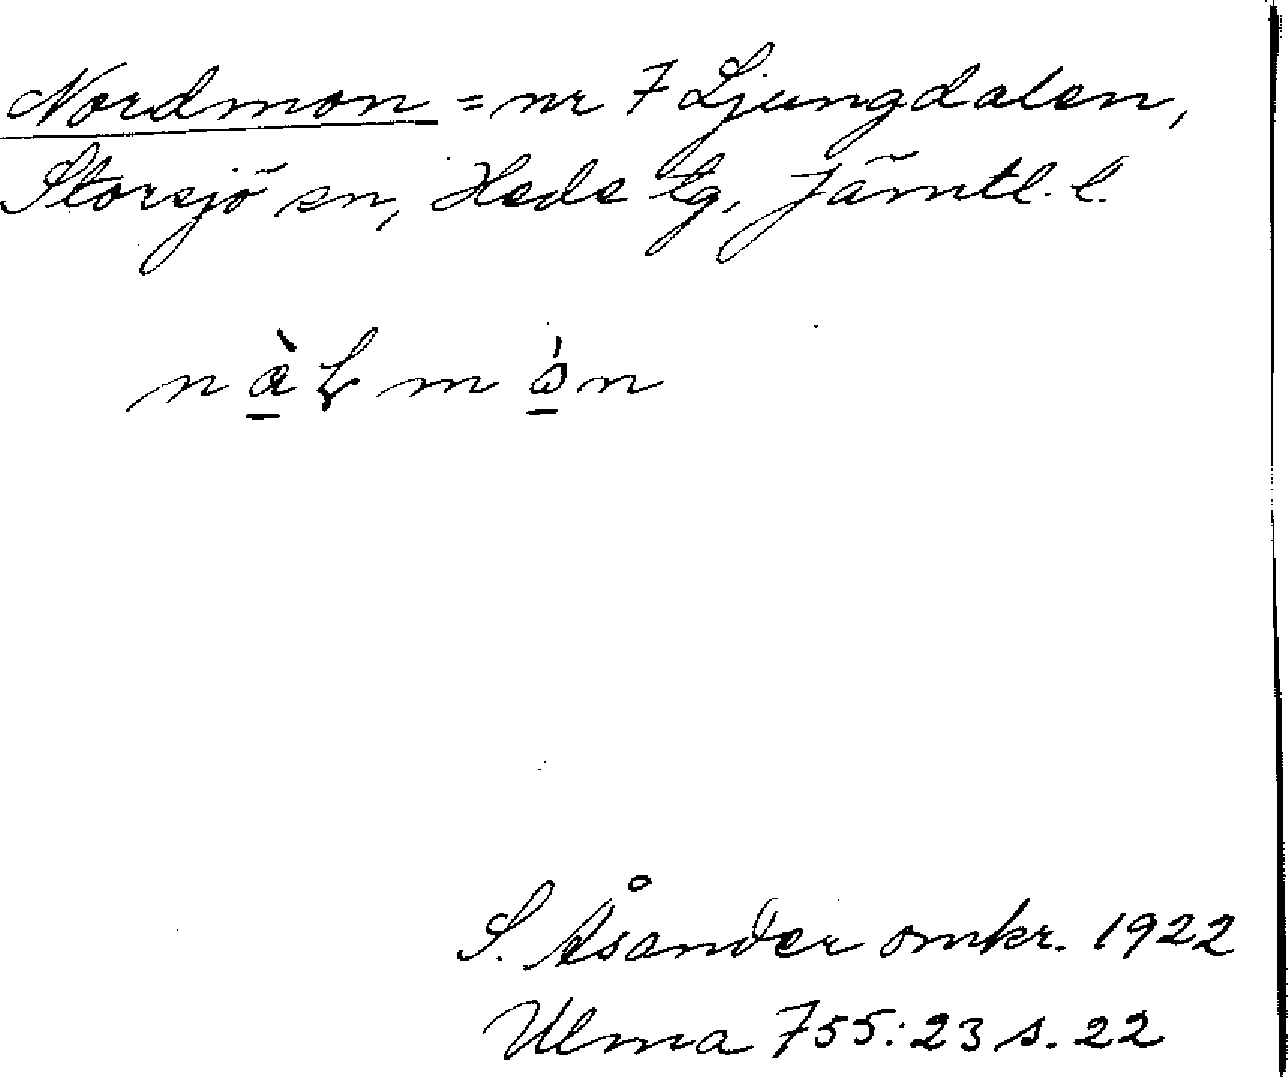 Nordmon = nr 7 Ljungdalen,
Storsjö sn, Hede tg, Jämtl. l.
S. Åsander omkr. 1922
Ulma 755:23 s. 22